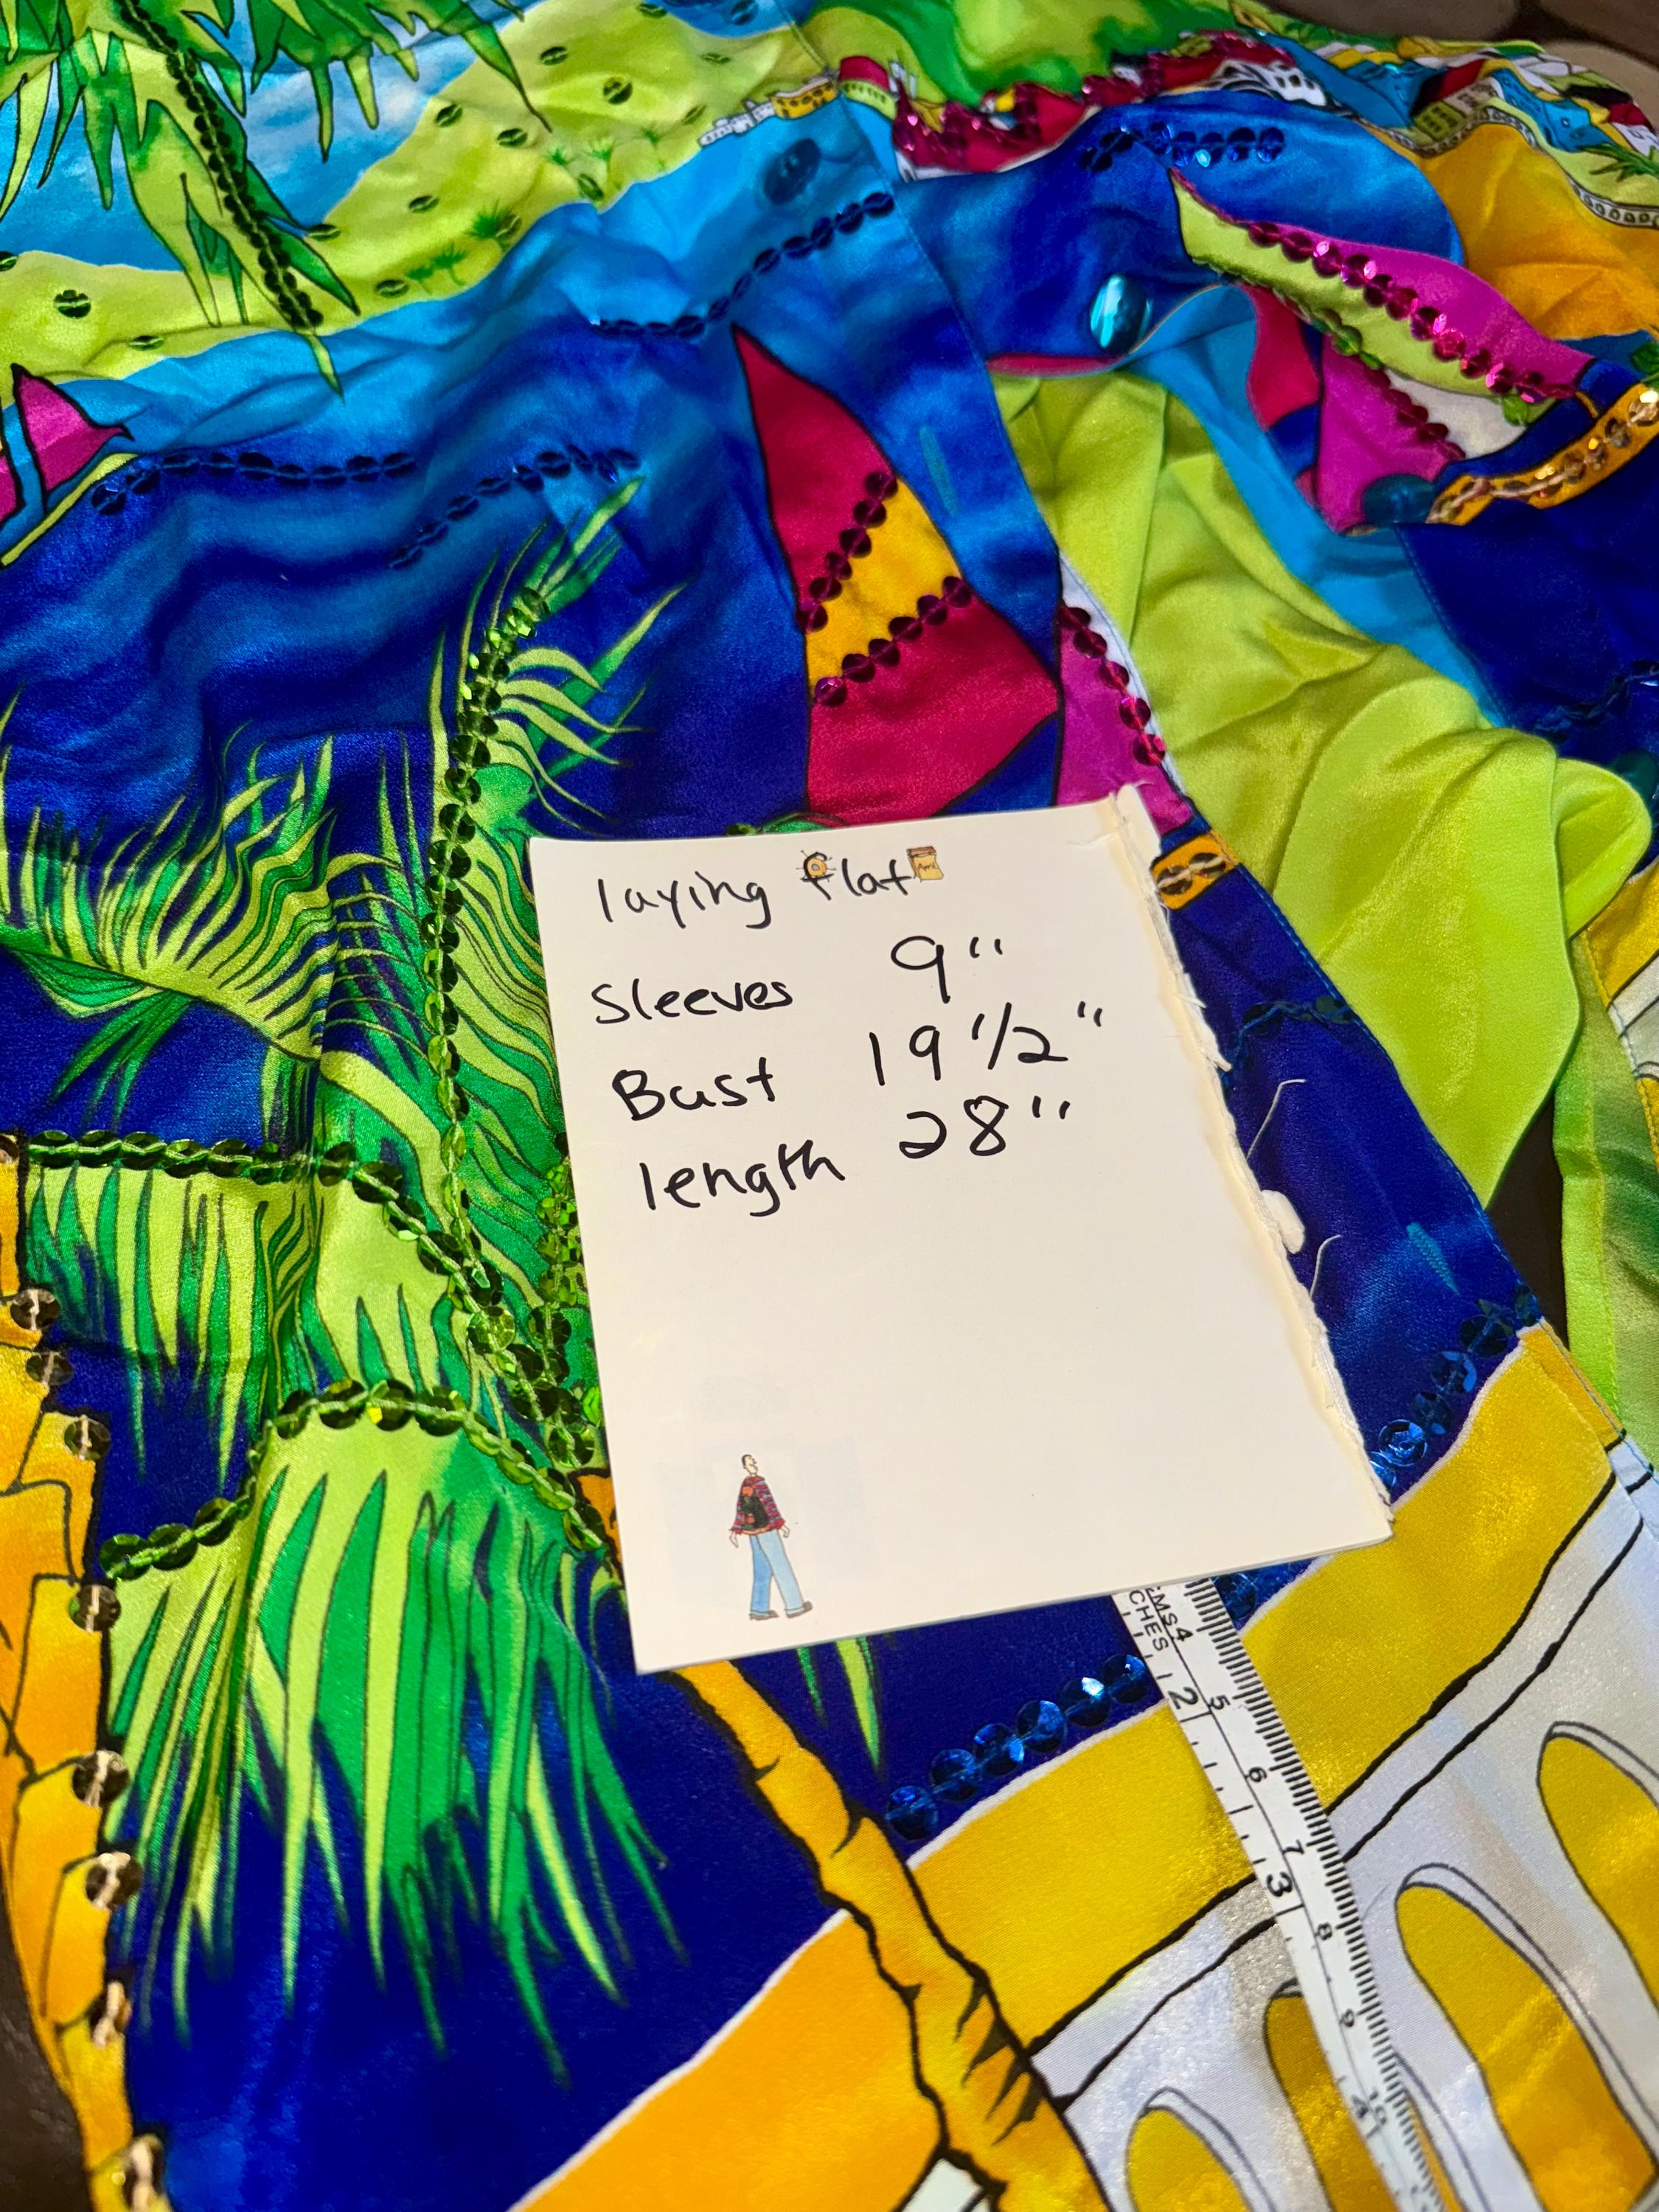 laying flat
Sleeves 9"
Bust 19 1/2"
length 28"
CMS 4
CHES
2 5
6
7
3
8
9
10